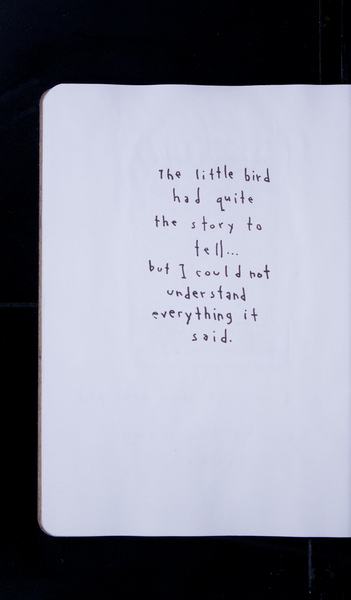 The little bird
had quite
the story to
tell...
but I could not
understand
everything it
said.